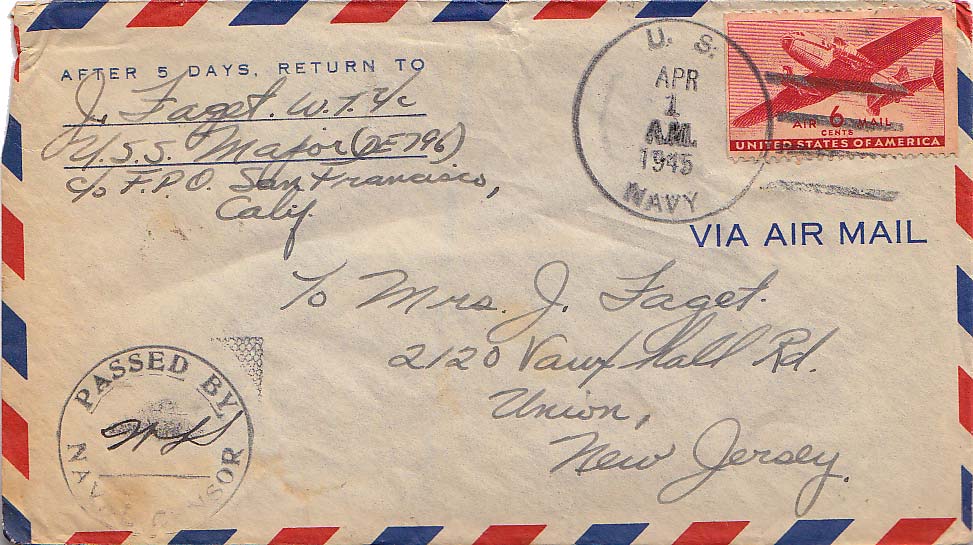 AFTER 5 DAYS, RETURN TO
J. Faget. W.T. 2/c
U.S.S. Major (DE796)
c/o F.P.O. San Francisco,
Calif.
U. S.
APR
1
A.M.
1945
NAVY
AIR 6 MAIL
CENTS
UNITED STATES OF AMERICA
VIA AIR MAIL
To Mrs. J. Faget.
2120 Vauxhall Rd.
Union,
New Jersey.
PASSED BY
NAVAL CENSOR